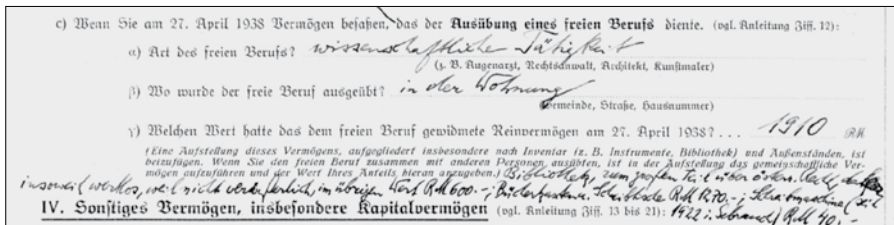 c) Wenn Sie am 27. April 1938 Vermögen besaßen, das der Ausübung eines freien Berufs diente. (vgl. Anleitung Ziff. 12):
α) Art des freien Berufs? wissenschaftliche Tätigkeit
(z. B. Augenarzt, Rechtsanwalt, Architekt, Kunstmaler)
β) Wo wurde der freie Beruf ausgeübt? in der Wohnung
(Gemeinde, Straße, Hausnummer)
γ) Welchen Wert hatte das dem freien Beruf gewidmete Reinvermögen am 27. April 1938? . . . 1910 RM
(Eine Aufstellung dieses Vermögens, aufgegliedert insbesondere nach Inventar (z. B. Instrumente, Bibliothek) und Außenständen, ist
beizufügen. Wenn Sie den freien Beruf zusammen mit anderen Personen ausübten, ist in der Aufstellung das gemeinschaftliche Ver-
mögen aufzuführen und der Wert Ihres Anteils hieran anzugeben.) Bibliothek, zum großen Teil über österr. Recht,
insoweit wertlos, weil nicht verkäuflich, im übrigen Wert RM 600.-; Bücherkasten u. Schreibtisch RM 1270.-; Schreibmaschine (seit
IV. Sonstiges Vermögen, insbesondere Kapitalvermögen (vgl. Anleitung Ziff. 13 bis 21): 1922 i. Gebrauch) RM 40.-